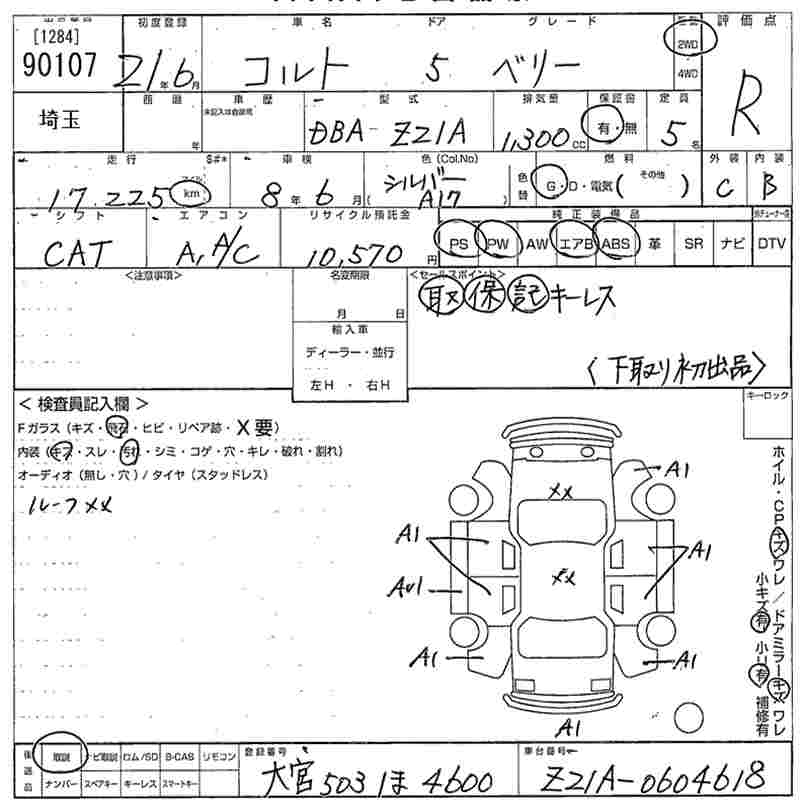 [1284]
90107
初度登録 車名 ドア グレード 駆動 評価点
21年6月 コルト 5 ベリー 2WD 4WD R
埼玉
西暦 車歴 型式 排気量 保証書 定員
年 未記入は自家用 DBA-Z21A 1,300cc 有・無 5名
走行 車検 色(Col.No) 色替 燃料 外装 内装
17,225 マイル km 8年6月 ( シルバー A17 ) G・D・電気( その他 ) C B
シフト エアコン リサイクル預託金 純正装備品
CAT A,A/C 10,570円 PS PW AW エアB ABS 革 SR ナビ DTV
<注意事項> 名変期限 <セールスポイント>
月 日 取 保 記 キーレス
輸入車
ディーラー・並行
左H ・ 右H
<下取り初出品>
キーロック
< 検査員記入欄 >
Fガラス (キズ・飛石・ヒビ・リペア跡・X要)
内装 (キズ・スレ・汚れ・シミ・コゲ・穴・キレ・破れ・割れ)
オーディオ (無し・穴) / タイヤ (スタッドレス)
ルーフXX
A1
XX
A1 A1
XX
AU1
A1 A1
A1
ホイル・CPキズワレ / ドアミラーキズワレ
小キズ有 小U有 補修有
後送品 取説 ナビ取説 ロム/SD B-CAS リモコン
ナンバー スペアキー キーレス スマートキー
登録番号 大宮 503 ほ 4600
車台番号 Z21A-0604618